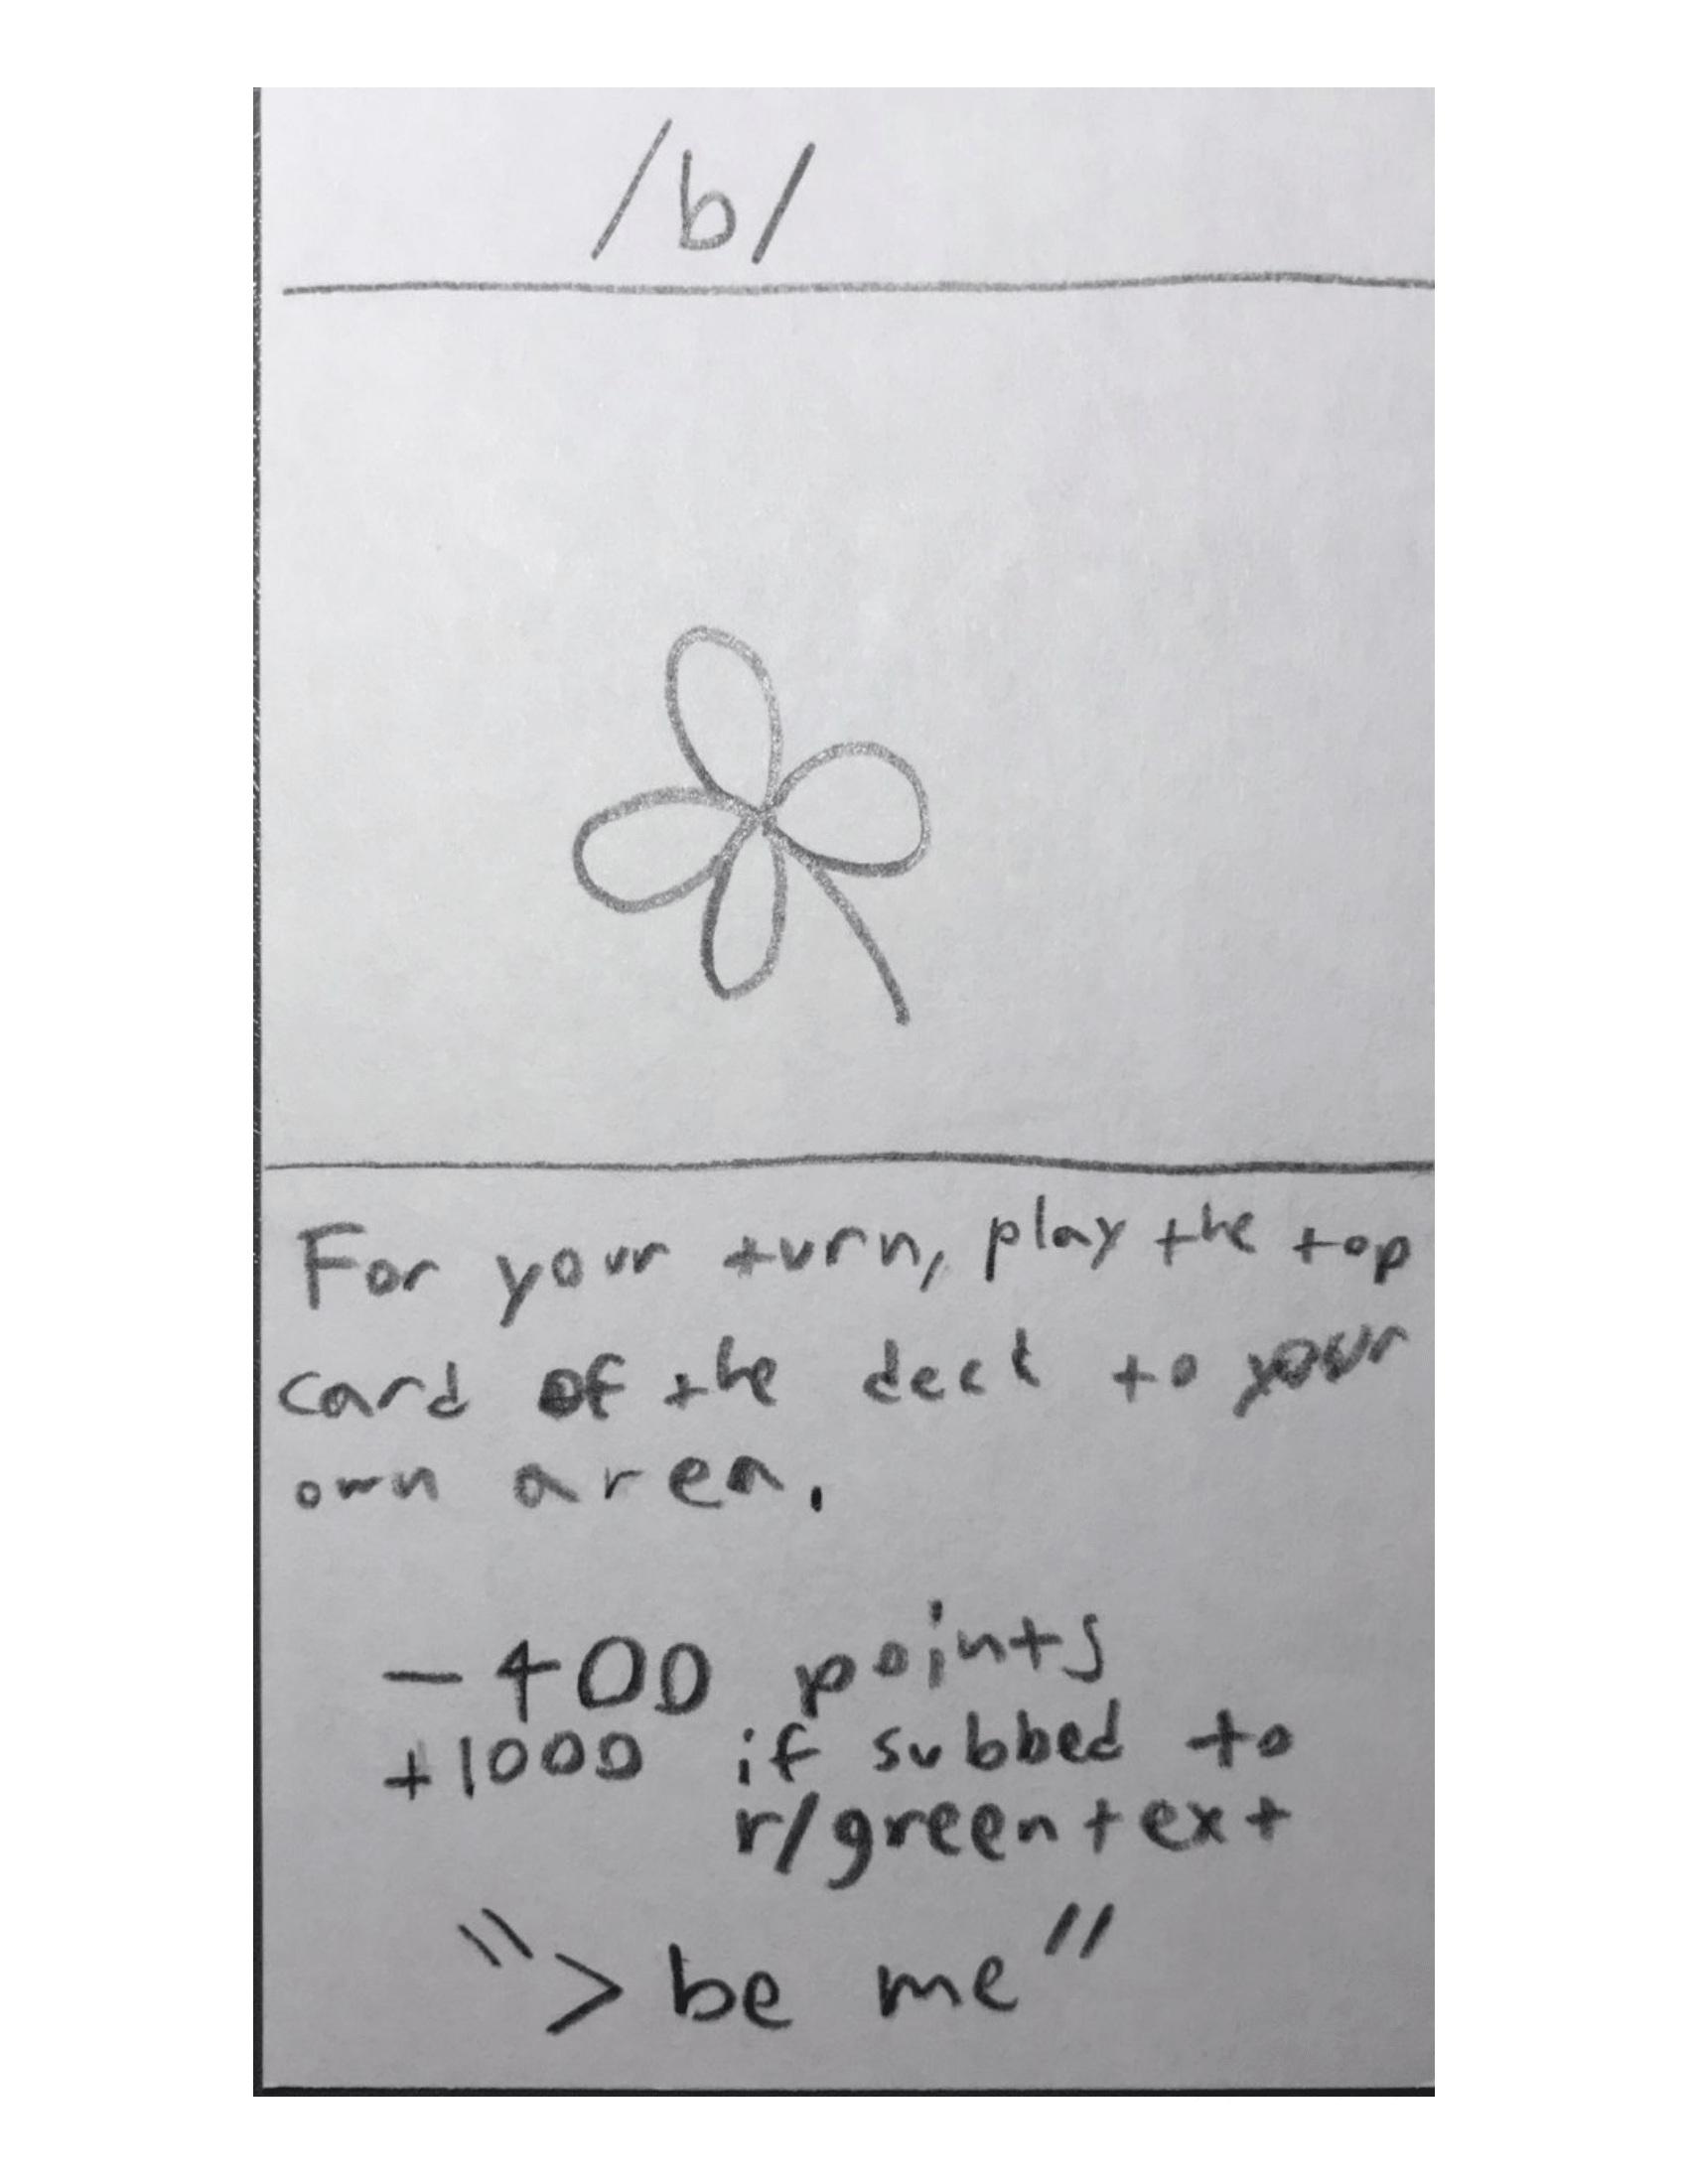 /b/
For your turn, play the top
card of the deck to your
own area.
-400 points
+1000 if subbed to
r/greentext
"> be me"